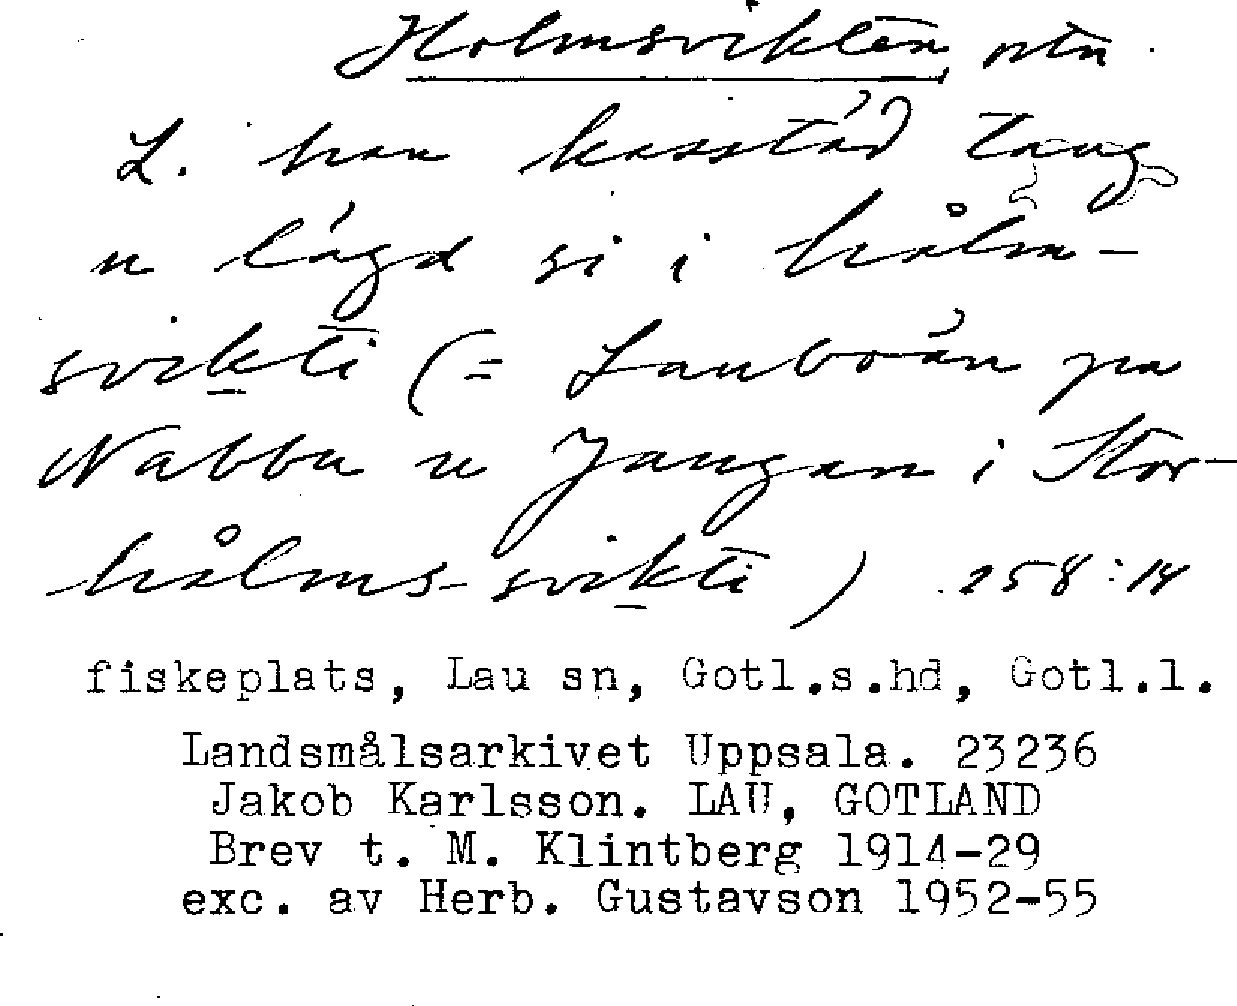 Holmsvikten, ortn.
L. han kasstäd tang
u lägd si i hålm-
svikti (= Lauboán pa
Nabbu u Jaugan i Stor-
hålms-svikti) 258:14
fiskeplats, Lau sn, Gotl.s.hd, Gotl.l.
Landsmålsarkivet Uppsala. 23236
Jakob Karlsson. LAU, GOTLAND
Brev t. M. Klintberg 1914-29
exc. av Herb. Gustavson 1952-55